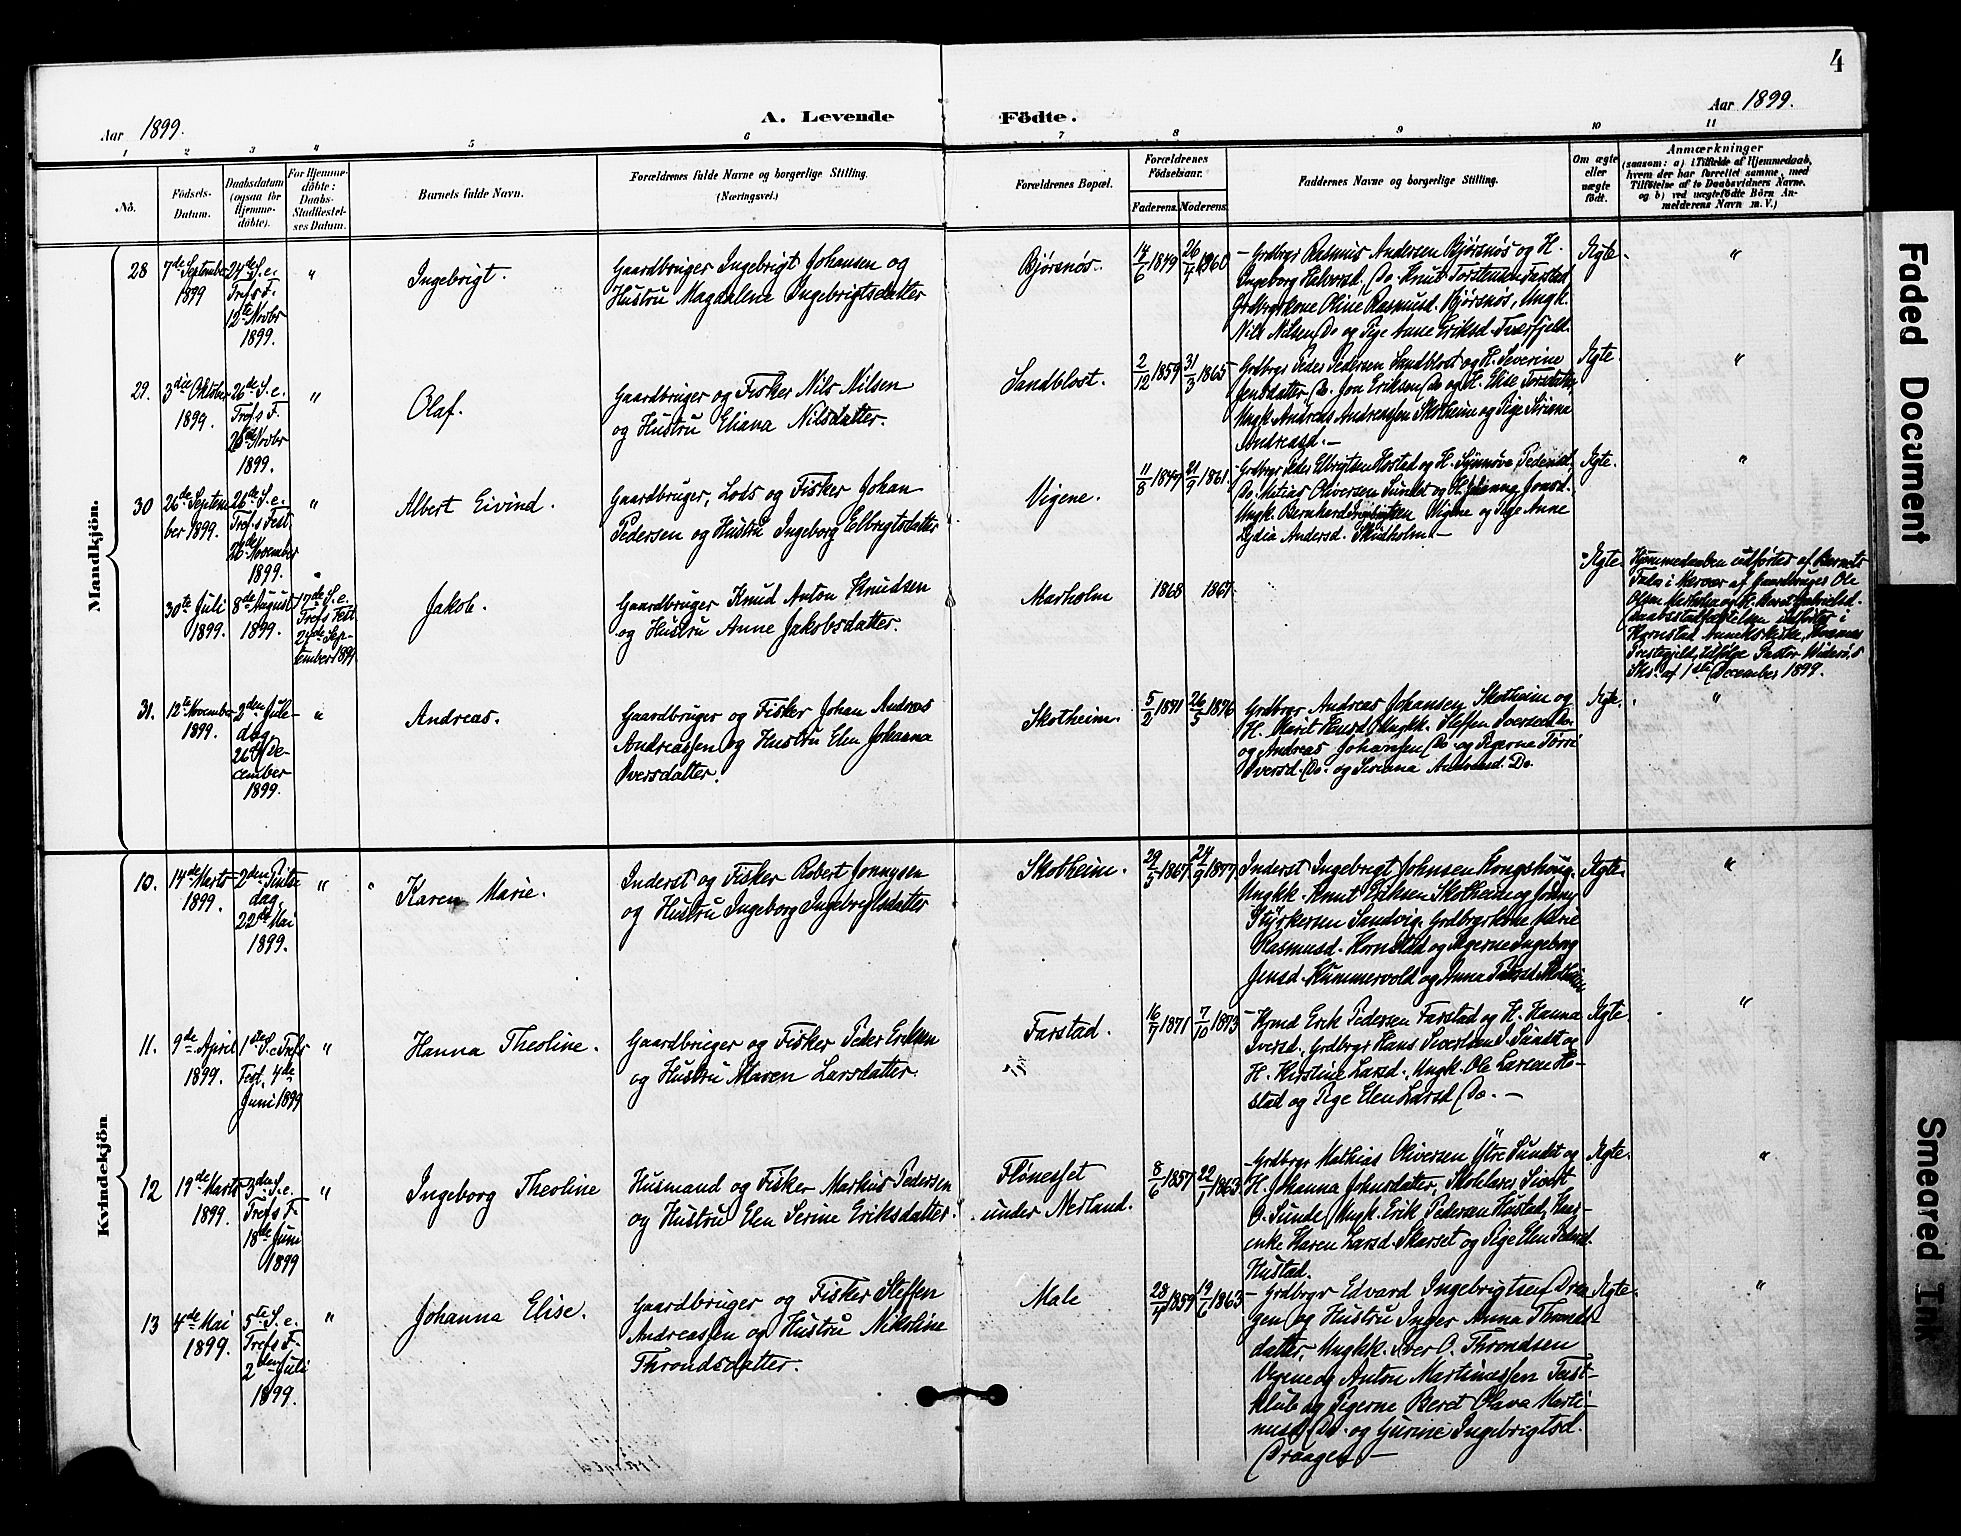 4
Aar 1899.
A. Levende Födte.
Aar 1899.
1 2 3 4 5 6 7 8 9 10 11
No.
Födsels-
Datum.
Daabsdatum
(ogsaa for
Hjemme-
döbte).
For Hjemme-
döbte:
Daabs-
Stadfæstel-
ses Datum.
Barnets fulde Navn.
Forældrenes fulde Navne og borgerlige Stilling.
(Næringsvei.)
Forældrenes Bopæl.
Forældrenes
Födselsaar.
Faderens. Moderens.
Faddernes Navne og borgerlige Stilling.
Om ægte
eller
uægte
födt.
Anmærkninger
(saasom: a) i Tilfælde af Hjemmedaab,
hvem der har forrettet samme, med
Tilföielse af to Daabsvidners Navne.
og b) ved uægtefödte Börn An-
melderens Navn m. V.)
Mandkjön.
28
7de September
1899
24de S. e.
Trefs F.
12te Novbr
1899.
"
Ingebrigt.
Gaardbruger Ingebrigt Johansen og
Hustru Magdalene Ingebrigtsdatter
Bjørsnøs.
14/6 1849
26/4 1860
- Grdbrgr Rasmus Andersen Bjørsnøs og H.
Ingeborg Halvorsd. Do. Knut Torstensen
Grdbrgrkone Oline Rasmusd. Bjørsnøs, Ungk.
Nils Nilsen Do og Pige Anne Eriksd. Tverfjeld.
Ægte.
"
29.
3die Oktober
1899.
26de S. e.
Trefs F.
26de Novbr
1899.
"
Olaf.
Gaardbruger og Fisker Nils Nilsen
og Hustru Eliana Nilsdatter.
Sandblost.
2/12 1859
31/3 1865
- Grdbrgr Peder Pedersen Sandblost og H. Severine
Jensdatter Do. Jon Eriksen Do og H. Elise
Ungk. Andreas Andreassen Skotheim og Pige Siriana
Andreasd. -
Ægte
"
30
26de Septem-
ber 1899.
26de S. e.
Trefs Fest.
26de November
1899.
"
Albert Eivind.
Gaardbruger, Lods og Fisker Johan
Pedersen og Hustru Ingeborg Elbrigtsdatter
Vigene.
11/8 1849
21/9 1861.
- Grdbrgr Peder Elbrigtsen Hostad og H. Synnøve Pedersd.
Do. Matias Oliversen Sundet og H. Johanna Jonsd.
Ungk. Bernhard Vigene og Pige Anne
Lydia Andersd. Skudholm -
Ægte.
"
30te Juli
1899.
8de August
1899.
17de S. e.
Trefs Fest
24de Sep-
tember 1899
Jakob.
Gaardbruger Knud Anton Knudsen
og Hustru Anne Jakobsdatter.
Marholm
1868
1867.
Ægte
Hjemmedaaben udførtes af Barnets
af Gaardbruger Ole
Olsen og H. Beret Gabrielsd.
Daabsstadfæstelsen udførtes i
Kornstad Annekskirke, Kvernes
Prestegjeld, ifølge Pastor Widerøes
Skr. af 1ste December 1899.
31.
12te November
1899.
2den Jule-
dag,
26de De-
cember
1899.
"
Andreas.
Gaardbruger og Fisker Johan Andreas
Andreassen og Hustru Elen Johanna
Iversdatter.
Skotheim.
5/2 1871
26/5 1876
Grdbrgr Andreas Johansen Skotheim og
H. Marit Knutsd. Ungkk. Steffen Iversen Do.
og Andreas Johansen Do. og Pigerne
Iversd. Do. og Serianna Andreasd. Do.
Ægte.
"
Kvindekjön
10.
14de Marts
1899.
2den Pintse
dag,
22de Mai
1899.
"
Karen Marie.
Inderst og Fisker Robert Jonnysen
og Hustru Ingeborg Ingebrigtsdatter
Skotheim.
29/5 1867
24/9 1877.
Inderst Ingebrigt Johnsen Kongshoug.
Ungkk. Knut Eriksen Skotheim og Jonny
Styrkersen Sandvig. Grdbrgrkone
Rasmusd. Hornstad og Pigerne Ingeborg
Jensd. Hummervold og Anna
Ægte.
"
11.
9de April
1899.
1ste S. e Trefs
Fest, 4de
Juni 1899
"
Hanna Theoline.
Gaardbruger og Fisker Peder Eriksen
og Hustru Maren Larsdatter.
Farstad.
16/7 1871
7/10 1873
- Kymd Erik Pedersen Farstad og H. Hanna
Iversd. Grdbrgr Hans Sivertsen I. Sundt og
H. Kirstine Larsd., Ungk. Ole Larsen Ho-
stad og Pige Elen Larsd. Do. -
Ægte.
"
12
19de Marts
1899.
3die S. e.
Trefs F.
18de Juni
1899
"
Ingeborg Theoline
Husmand og Fisker Markus Pedersen
og Hustru Elen Serine Eriksdatter.
Flønesset
under Nerland.
8/6 1857
22/1 1863
- Grdbrgr Mathias Oliversen Ytre Sundet og
H. Johanna Johnsdatter, Skolelærer Sivert
O. Sunde, Ungk. Erik Pedersen Hustad, Hus-
enke Karen Larsd. Skarset og Pige Elen Pedersd.
Hustad.
Ægte.
"
13
4de Mai
1899.
5te S. e.
Trefs F.
2den Juli
1899.
"
Johanna Elise.
Gaardbruger og Fisker Steffen
Andreassen og Hustru Nikoline
Throndsdatter.
Male
28/4 1859
19/6 1863
- Grdbrgr Edvard Ingebrigtsen Draa-
gen og Hustru Inger Anna Thronds-
datter, Ungkk. Iver O. Throndsen
Vegene og Anton Martinussen Teist-
klub og Pigerne Beret Olava Marti-
nusd. Do. og Gurine Ingebrigtsd.
Draagen -
Ægte.
"
Faded Document
Smeared Ink